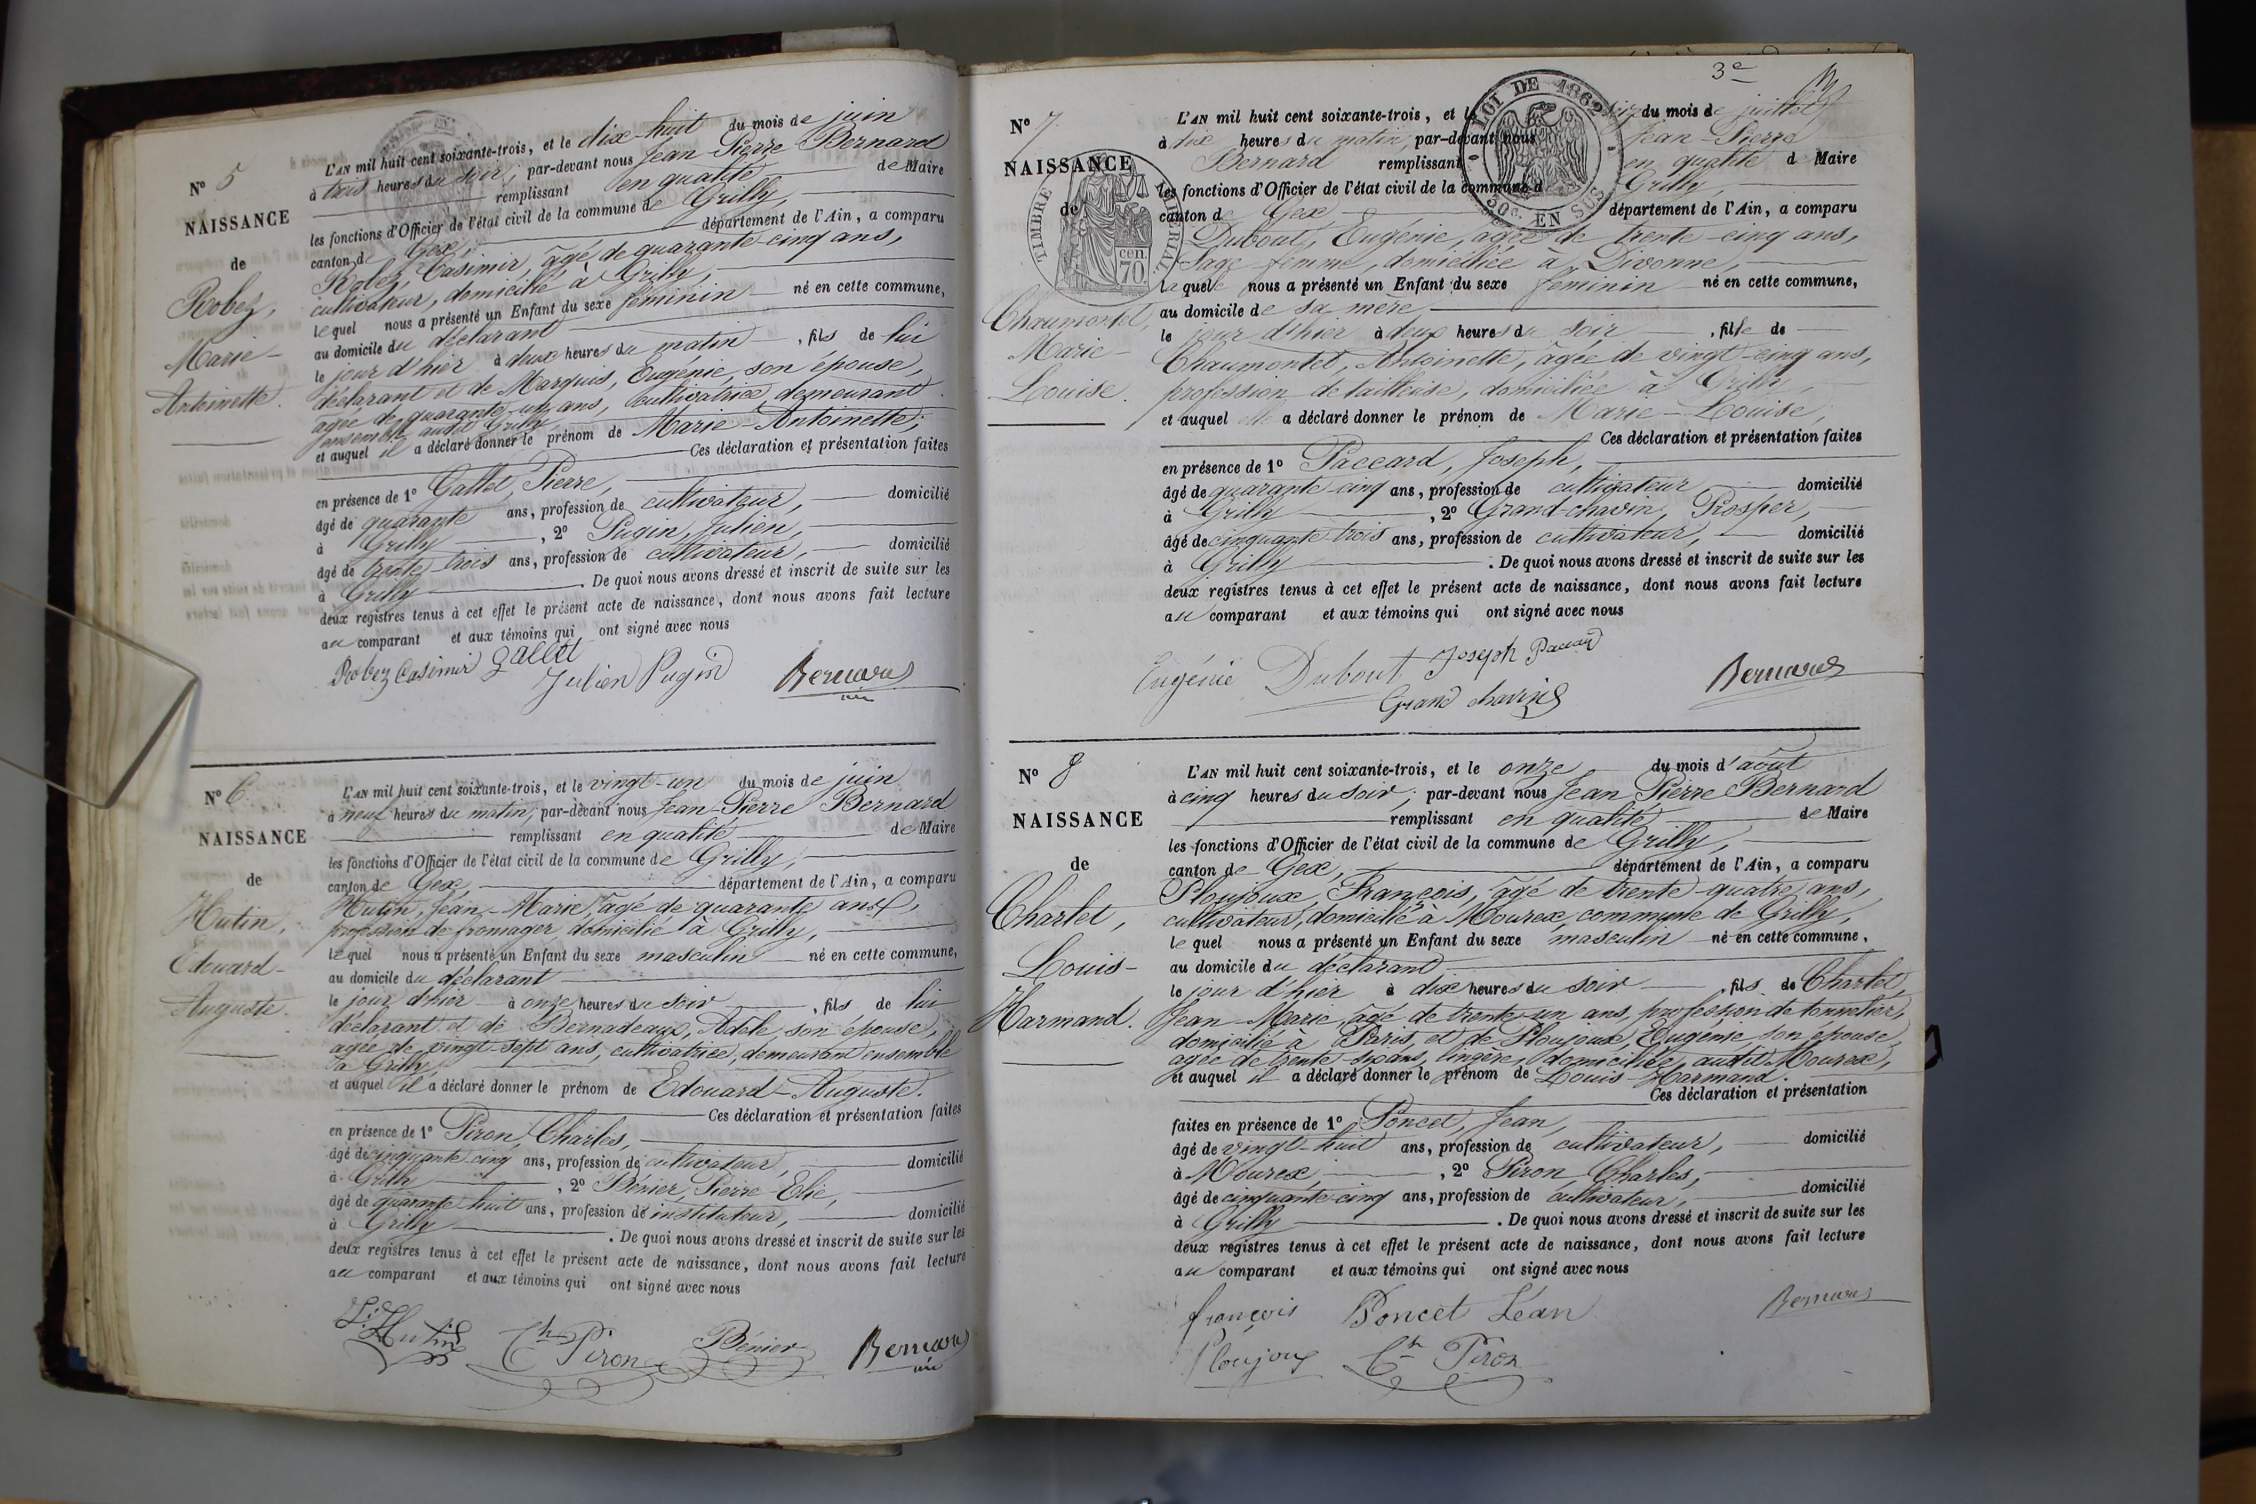 N° 5
NAISSANCE
de
Robez,
Marie-
Antoinette.
L'AN mil huit cent soixante-trois, et le dix-huit du mois de juin
à trois heures du soir, par-devant nous Jean-Pierre Bernard
remplissant en qualité de Maire
les fonctions d'Officier de l'état civil de la commune de Grilly,
canton de Gex, département de l'Ain, a comparu
Robez, Casimir, âgé de quarante-cinq ans,
cultivateur, domicilié à Grilly,
lequel nous a présenté un Enfant du sexe féminin né en cette commune,
au domicile du déclarant
le jour d'hier à deux heures du matin, fils de lui
déclarant et de Marquis, Eugénie, son épouse,
agée de quarante-un ans, cultivatrice, demeurant
ensemble audit Grilly,
et auquel il a déclaré donner le prénom de Marie-Antoinette;
Ces déclaration et présentation faites
en présence de 1° Gallet, Pierre,
âgé de quarante ans, profession de cultivateur, domicilié
à Grilly, 2° Pugin, Julien,
âgé de trente trois ans, profession de cultivateur, domicilié
à Grilly. De quoi nous avons dressé et inscrit de suite sur les
deux registres tenus à cet effet le présent acte de naissance, dont nous avons fait lecture
au comparant et aux témoins qui ont signé avec nous
Robez Casimir Gallet
Julien Pugin Bernard
N° 6
NAISSANCE
de
Hutin,
Edouard-
Auguste.
L'AN mil huit cent soixante-trois, et le vingt-un du mois de juin
à neuf heures du matin, par-devant nous Jean-Pierre Bernard
remplissant en qualité de Maire
les fonctions d'Officier de l'état civil de la commune de Grilly,
canton de Gex, département de l'Ain, a comparu
Hutin, Jean-Marie, âgé de quarante ans,
profession de fromager, domicilié à Grilly,
lequel nous a présenté un Enfant du sexe masculin né en cette commune,
au domicile du déclarant
le jour d'hier à onze heures du soir, fils de lui
déclarant et de Bernadeaux, Adèle, son épouse,
agée de vingt-sept ans, cultivatrice, demeurant ensemble
à Grilly,
et auquel il a déclaré donner le prénom de Edouard-Auguste.
Ces déclaration et présentation faites
en présence de 1° Piron, Charles,
âgé de cinquante-cinq ans, profession de cultivateur, domicilié
à Grilly, 2° Bénier, Pierre Elie,
âgé de quarante huit ans, profession de instituteur, domicilié
à Grilly. De quoi nous avons dressé et inscrit de suite sur les
deux registres tenus à cet effet le présent acte de naissance, dont nous avons fait lecture
au comparant et aux témoins qui ont signé avec nous
Hutin Ch Piron Bénier Bernard
3e
N° 7
NAISSANCE
de
TIMBRE IMPERIAL
cen. 70.
LOI DE 1862
50c. EN SUS
Chaumontet,
Marie-
Louise.
L'AN mil huit cent soixante-trois, et le du mois de juillet
à dix heures du matin, par-devant nous Jean-Pierre
Bernard remplissant en qualité de Maire
les fonctions d'Officier de l'état civil de la commune d Grilly,
canton de Gex département de l'Ain, a comparu
Dubout, Eugénie, agée de trente-cinq ans,
Sage femme, domiciliée à Divonne,
laquelle nous a présenté un Enfant du sexe féminin né en cette commune,
au domicile de sa mère
le jour d'hier à deux heures du soir, fille de
Chaumontet, Antoinette, âgée de vingt-cinq ans,
profession de tailleuse, domiciliée à Grilly,
et auquel elle a déclaré donner le prénom de Marie-Louise,
Ces déclaration et présentation faites
en présence de 1° Paccard, Joseph,
âgé de quarante-cinq ans, profession de cultivateur domicilié
à Grilly, 2° Grand-chavin, Prosper,
âgé de cinquante-trois ans, profession de cultivateur, domicilié
à Grilly. De quoi nous avons dressé et inscrit de suite sur les
deux registres tenus à cet effet le présent acte de naissance, dont nous avons fait lecture
au comparant et aux témoins qui ont signé avec nous
Eugénie Dubout Joseph Paccard
Grand chavin Bernard
N° 8
NAISSANCE
de
Chartet,
Louis-
Harmand.
L'AN mil huit cent soixante-trois, et le onze du mois d'août
à cinq heures du soir, par-devant nous Jean Pierre Bernard
remplissant en qualité de Maire
les fonctions d'Officier de l'état civil de la commune de Grilly,
canton de Gex, département de l'Ain, a comparu
Ploujoux, François, âgé de trente-quatre ans,
cultivateur, domicilié à Mourex, commune de Grilly,
lequel nous a présenté un Enfant du sexe masculin né en cette commune,
au domicile du déclarant
le jour d'hier à dix heures du soir, fils de Chartet,
Jean-Marie, âgé de trente-un ans, profession de tonnelier,
domicilié à Paris, et de Ploujoux, Eugénie, son épouse,
agée de trente-six ans, lingère, domiciliée audit Mourex,
et auquel il a déclaré donner le prénom de Louis-Harmand.
Ces déclaration et présentation
faites en présence de 1° Poncet, Jean,
âgé de vingt-huit ans, profession de cultivateur, domicilié
à Mourex, 2° Piron Charles,
âgé de cinquante-cinq ans, profession de cultivateur, domicilié
à Grilly. De quoi nous avons dressé et inscrit de suite sur les
deux registres tenus à cet effet le présent acte de naissance, dont nous avons fait lecture
au comparant et aux témoins qui ont signé avec nous
françois Poncet Jéan Bernard
Ploujoux Ch Piron